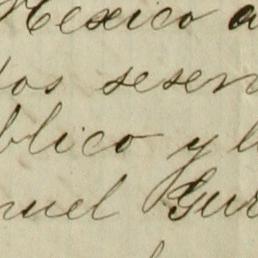 Mexico a
tos sesen
blico y l
nuel Gur